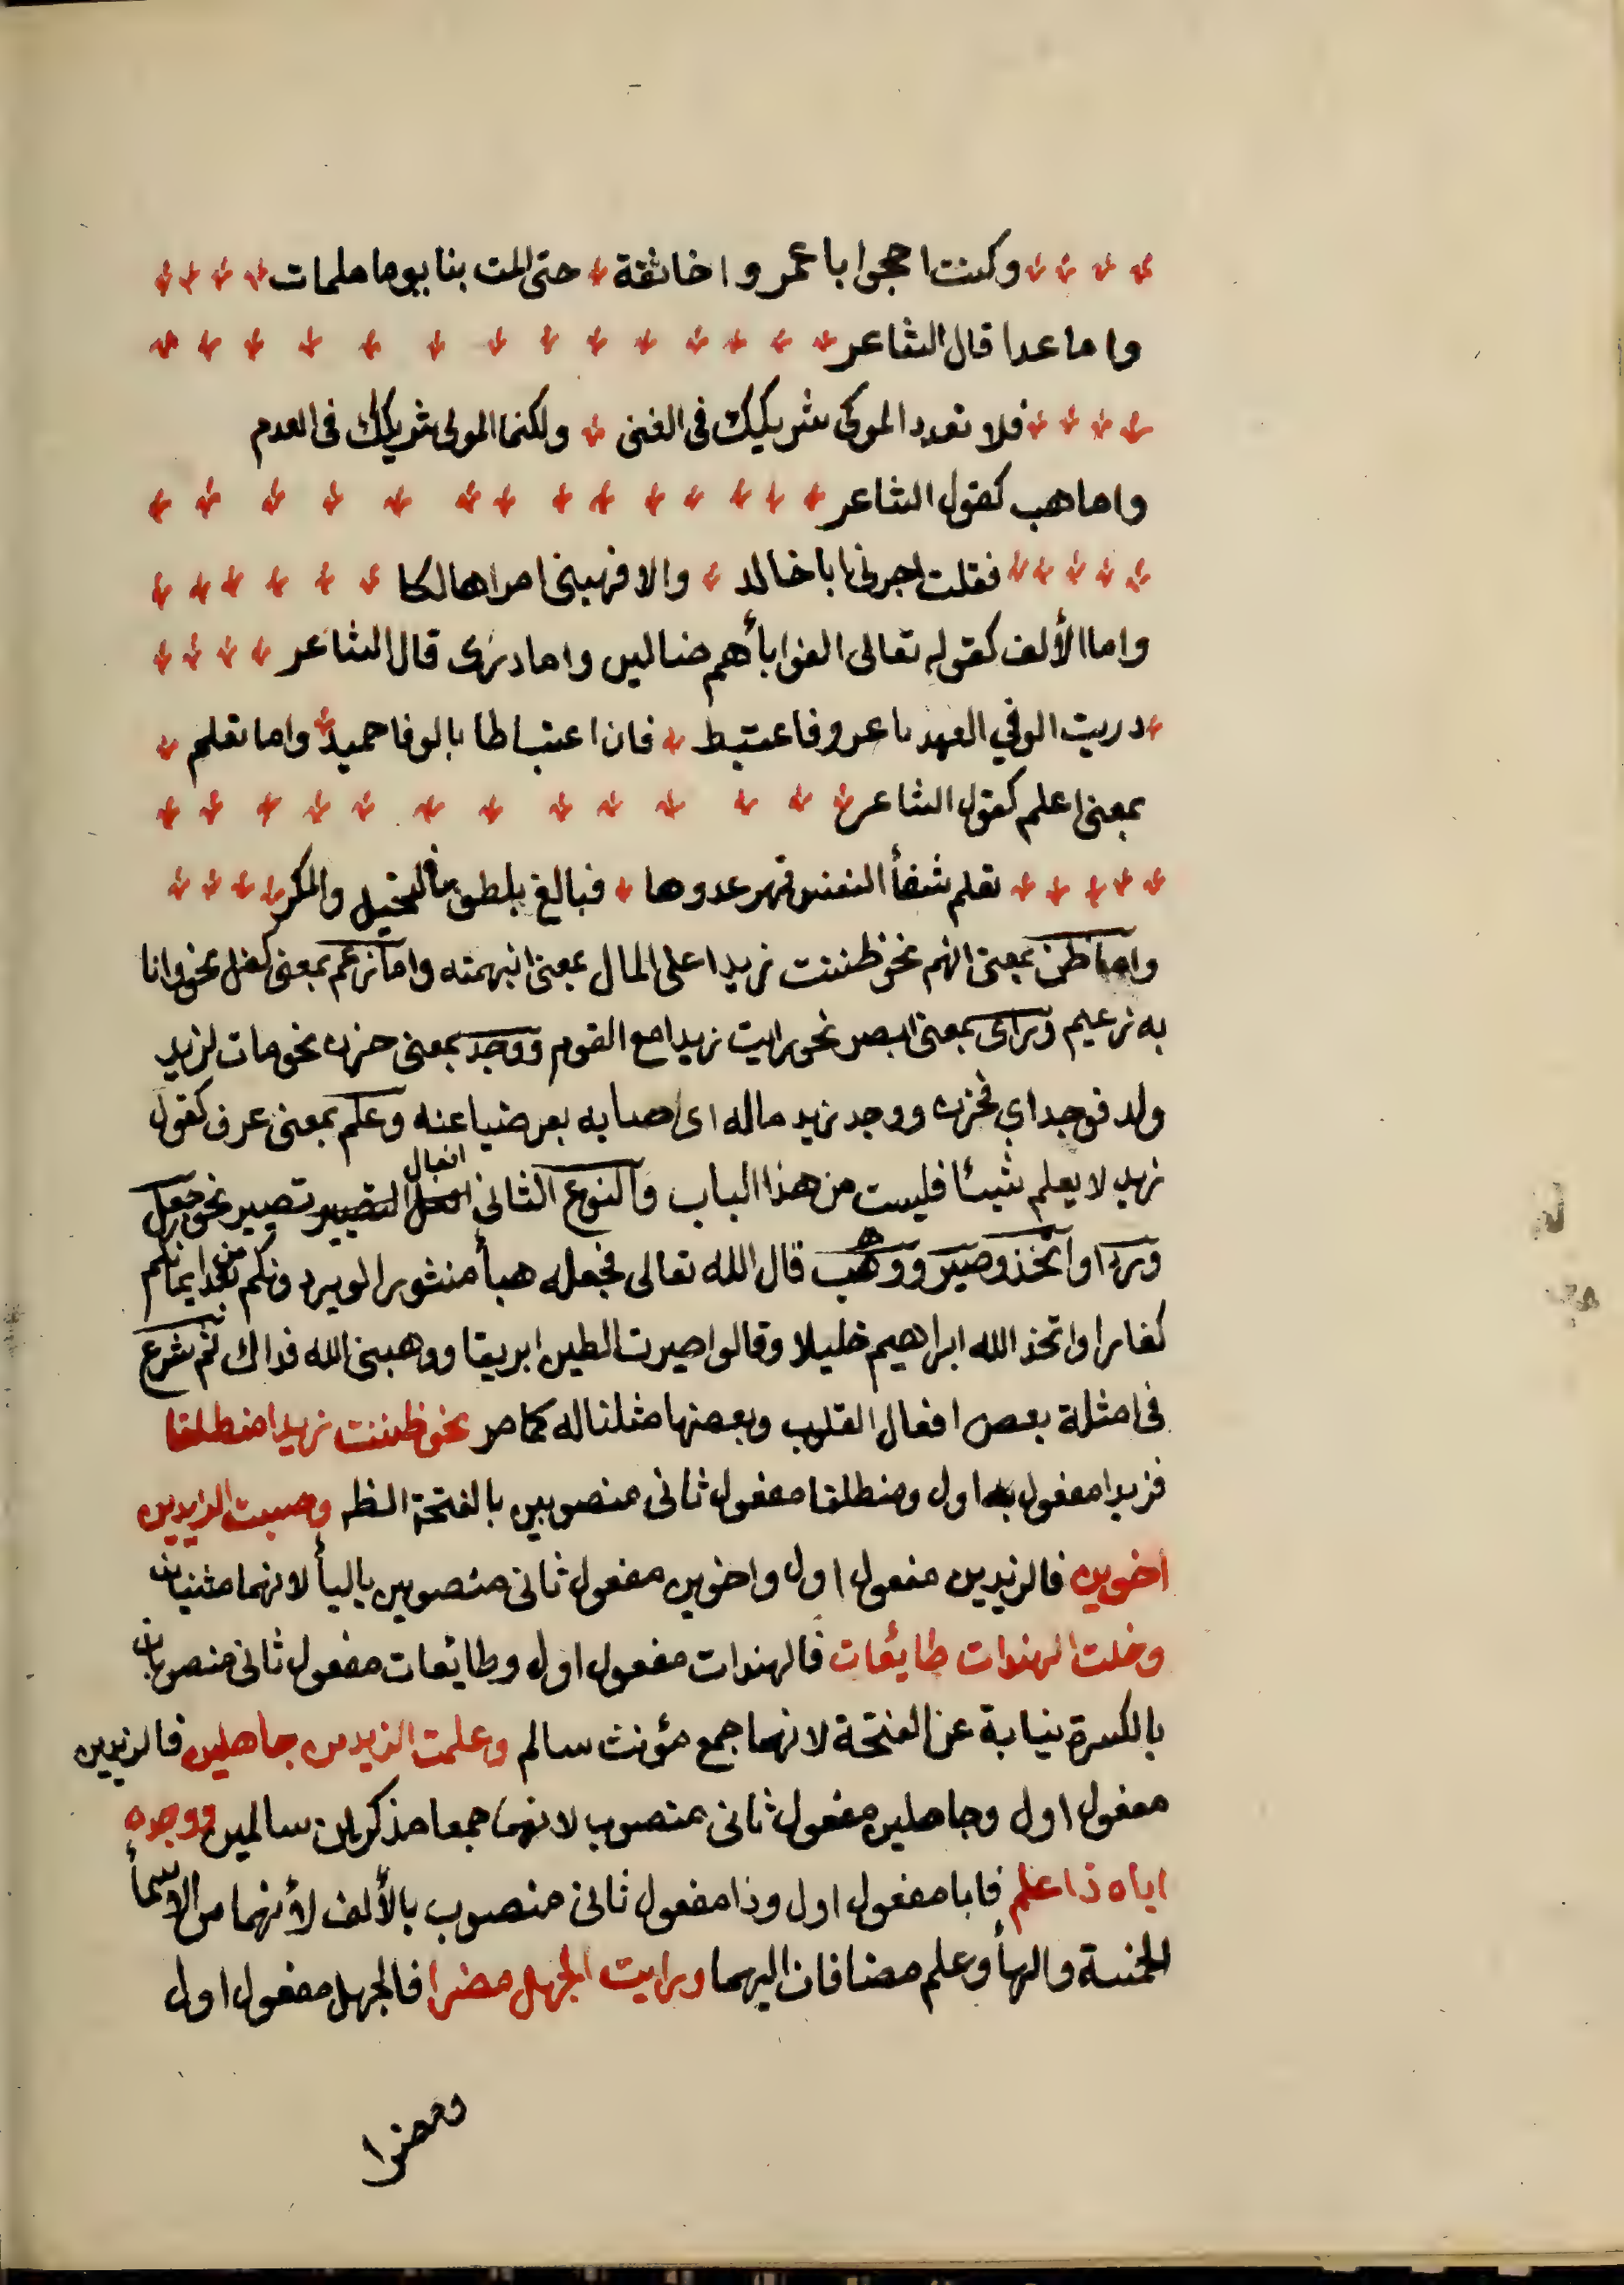 وكنت احجوا با عمر و اخا ثقة حتى المت بنا يوما ملمات
واما عدا قال الشاعر
فلا تعدد المولى شريكك في الغنى ولكنما المولى شريكك في العدم
واما هب كقول الشاعر
فقلت اجرني ابا خالد والا فهبني امرا هالكا
واما الألف كقوله تعالى الفوا بأهم ضالين واما درى قال الشاعر
دريت الوفي العهد يا عرو فاغتبط فان اغتباطا بالوفا حميد واما تعلم
بمعنى اعلم كقول الشاعر
تعلم شفأ النفس قهر عدوها فبالغ بلطف في التحيل والمكر
واما ظن بمعنى اتهم نحو ظننت زيدا على المال بمعنى اتهمته واما زعم بمعنى كفل نحو وانا
به زعيم ورأى بمعنى ابصر نحو رايت زيدا مع القوم ووجد بمعنى حزن نحو مات لزيد
ولد فوجد اي فحزن ووجد زيد ماله اى اصابه بعد ضياعنه وعلم بمعنى عرف كقول
زيد لا يعلم شيئا فليست من هذا الباب والنوع الثاني افعال التصيير تصيير نحو جعل
ورد واتخذ وصير ووهب قال الله تعالى فجعله هبأ منثورا لو يردونكم من بعد ايمانكم
كفارا واتخذ الله ابراهيم خليلا وقالوا صيرت الطين ابريقا ووهبني الله فداك ثم شرع
في امثلة بعض افعال القلوب وبعضها مثلنا له كما مر نحو ظننت زيدا منطلقا
فزيدا مفعول به اول ومنطلقا مفعول ثاني منصوبين بالفتحة الظه وحسبت الزيدين
اخوين فالزيدين مفعول اول واخوين مفعول ثاني منصوبين باليأ لانهما مثنيان
وخلت الهندات طايعات فالهندات مفعول اول وطايعات مفعول ثاني منصوبان
بالكسرة نيابة عن الفتحة لانهما جمع مؤنث سالم وعلمت الزيدين جاهلين فالزيدين
مفعول اول وجاهلين مفعول ثاني منصوب لانهما جمعا مذكران سالمين ووجدت
اباه ذا علم فابا مفعول اول وذا مفعول ثاني منصوب بالألف لأنهما من الاسمأ
الخمسة والهأ وعلم مضافان اليهما ورايت الجهل مضرا فالجهل مفعول اول
ومضرا